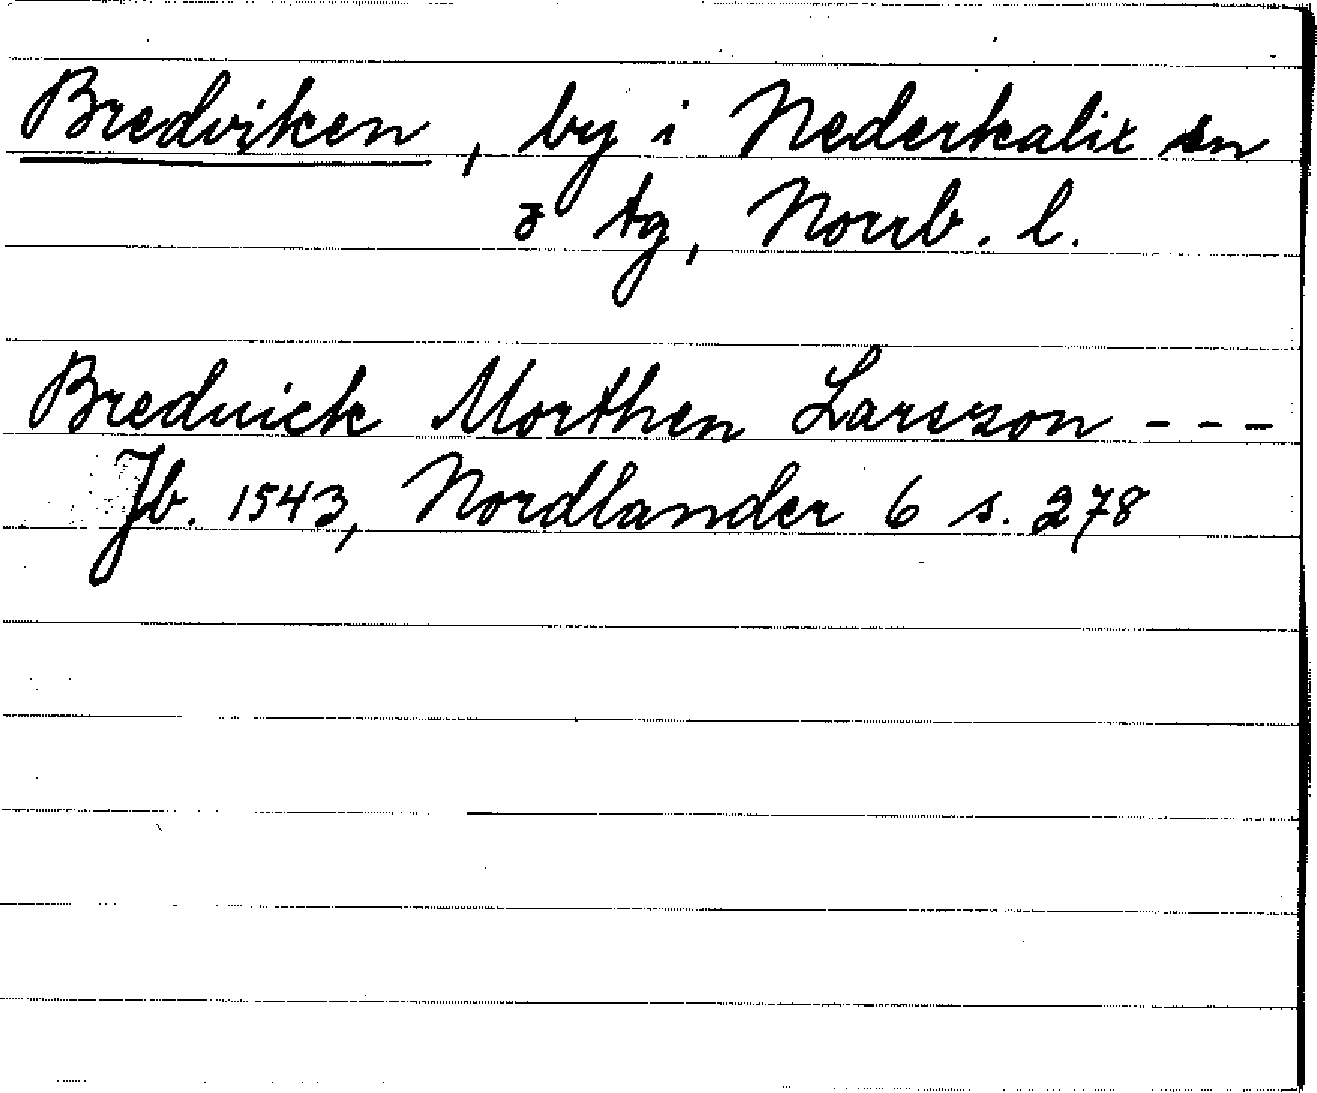 Bredviken, by i Nederkalix sn
o tg, Norrb. l.
Breduick Morthen Larsson - - -
Jb. 1543, Nordlander 6 s. 278